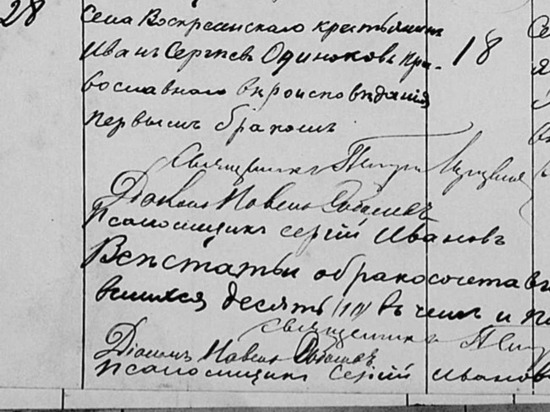 28 Села Воскресенскаго крестьянинъ Се
Иванъ Сергѣевъ Одиноковъ пра- 18
вославнаго вѣроисповѣданія
первымъ бракомъ
Священникъ Петръ
Діаконъ Павелъ
Псаломщикъ Сергій Ивановъ
Всѣхъ статьи о бракосочета
вшихся десять (10) въ чемъ и по
священникъ Пет
Діаконъ Павелъ
Псаломщикъ Сергій Иванов